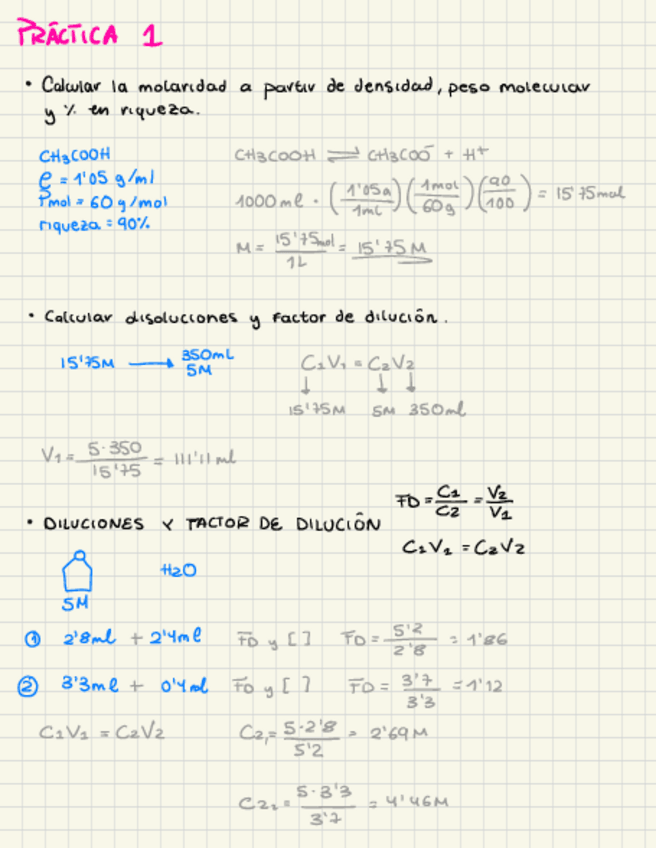 PRÁCTICA 1
• Calcular la molaridad a partir de densidad, peso molecular
y % en riqueza.
CH3COOH
ρ = 1'05 g/ml
Pmol = 60 g/mol
riqueza = 90%
CH3COOH ⇌ CH3COO⁻ + H⁺
1000 ml · (1'05g / 1mL) (1mol / 60g) (90 / 100) = 15'75mol
M = 15'75mol / 1L = 15'75 M
• Calcular disoluciones y factor de dilución.
15'75M → 350mL 5M
C1V1 = C2V2
↓ ↓ ↓
15'75M 5M 350ml
V1 = 5·350 / 15'75 = 111'11 ml
FD = C1/C2 = V2/V1
• DILUCIONES Y FACTOR DE DILUCIÓN
C1V1 = C2V2
H2O
5M
① 2'8ml + 2'4ml FD y [ ] FD = 5'2 / 2'8 = 1'86
② 3'3ml + 0'4ml FD y [ ] FD = 3'7 / 3'3 = 1'12
C1V1 = C2V2 C2₁ = 5·2'8 / 5'2 = 2'69 M
C2₂ = 5·3'3 / 3'7 = 4'46M